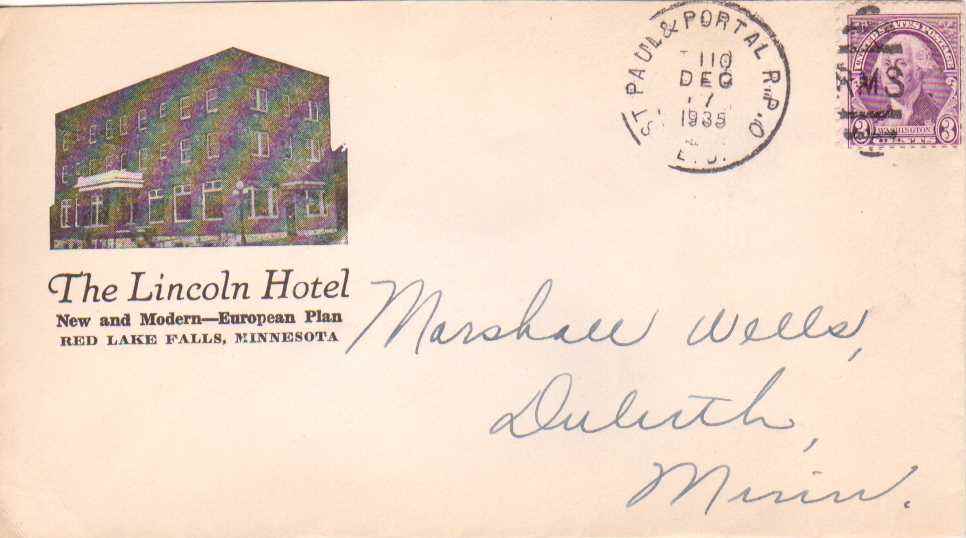 The Lincoln Hotel
New and Modern—European Plan
RED LAKE FALLS, MINNESOTA
ST PAUL & PORTAL R.P.O
110
DEC
7
1935
RMS
UNITED STATES POSTAGE
3 WASHINGTON 3
CENTS
Marshall Wells,
Duluth,
Minn.